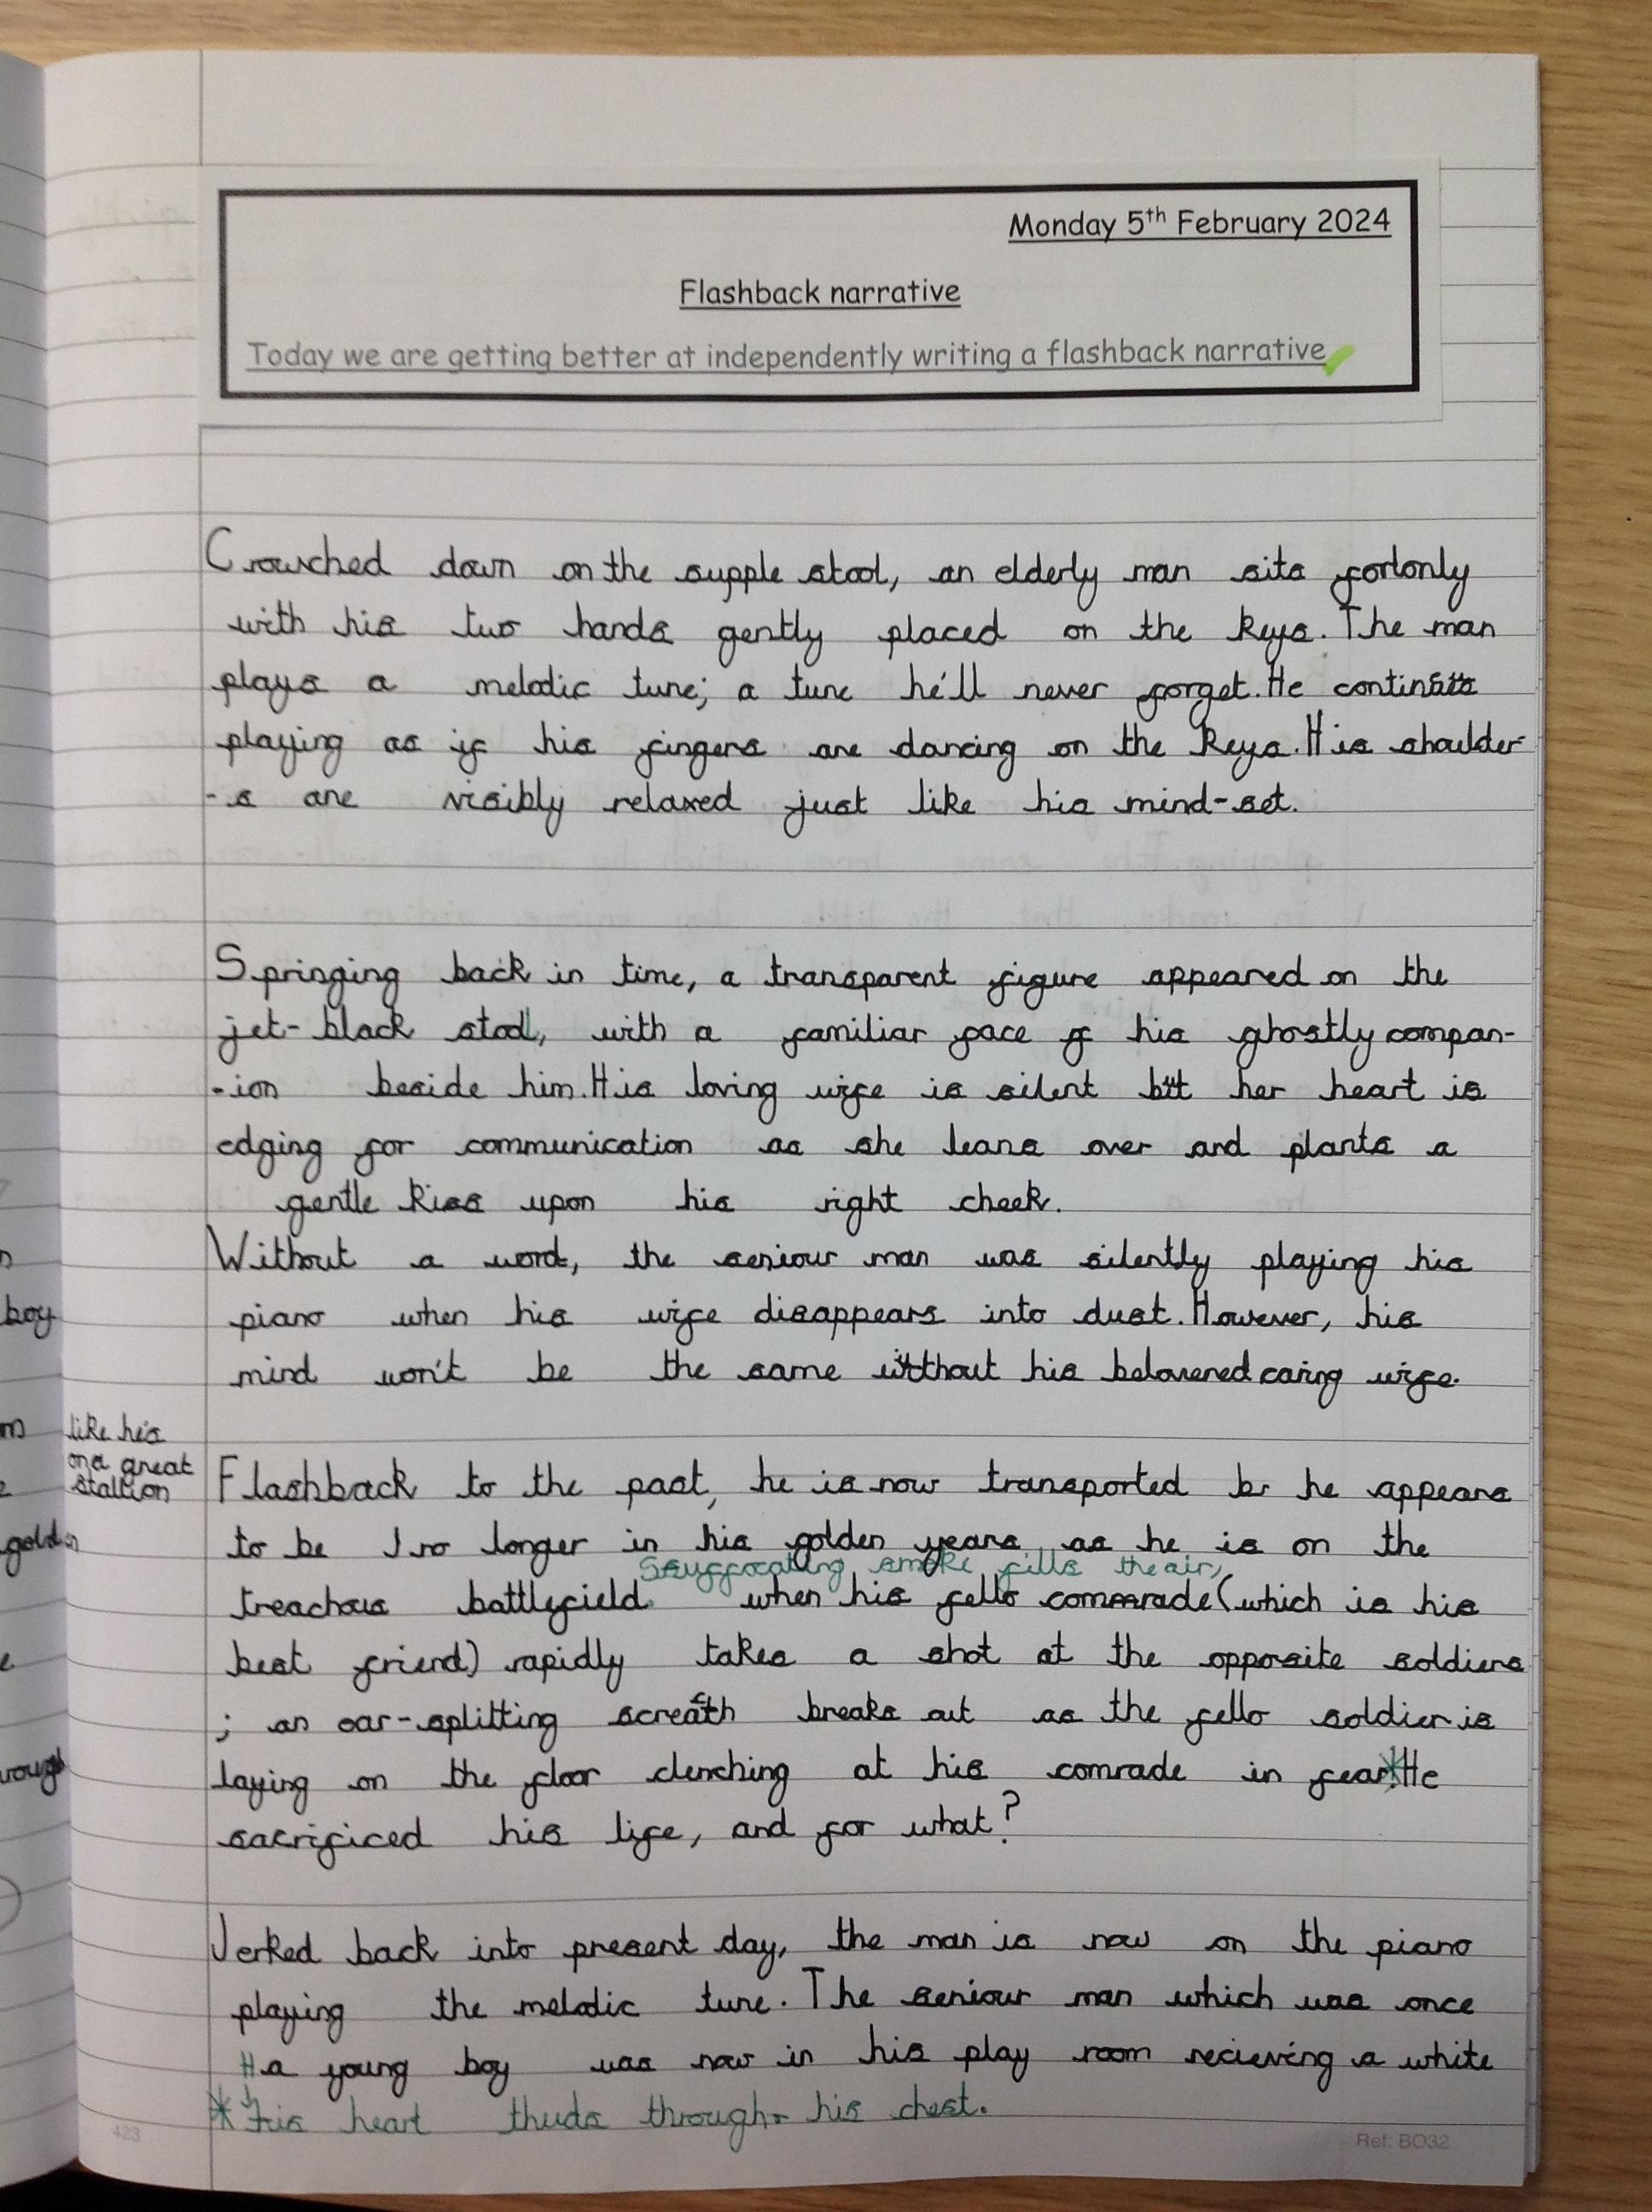 Monday 5th February 2024
Flashback narrative
Today we are getting better at independently writing a flashback narrative
Crouched down on the supple stool, an elderly man sits forlonly
with his two hands gently placed on the keys. The man
plays a melodic tune; a tune he'll never forget. He
playing as if his fingers are dancing on the keys. His shoulder-
-s are visibly relaxed just like his mind-set.
Springing back in time, a transparent figure appeared on the
jet-black stool, with a familiar face of his ghostly compan-
-ion beside him. His loving wife is silent but her heart is
edging for communication as she leans over and plants a
gentle kiss upon his right cheek.
Without a word, the seniour man was silently playing his
piano when his wife disappears into dust. However, his
mind won't be the same without his belovened caring wife.
like his
one great
stallion
Flashback to the past, he is now transported he appears
to be no longer in his golden years as he is on the
Suffocating smoke fills the air,
treachous battlefield when his fello comrade (which is his
best friend) rapidly takes a shot at the opposite soldiers
; an ear-splitting breaks out as the fello soldier is
laying on the floor clenching at his comrade in fear.* He
sacrificed his life, and for what?
Jerked back into present day, the man is now on the piano
playing the melodic tune. The seniour man which was once
a young boy was now in his play room recieving a white
* His heart thuds through his chest.
boy
423
Ref: BO32